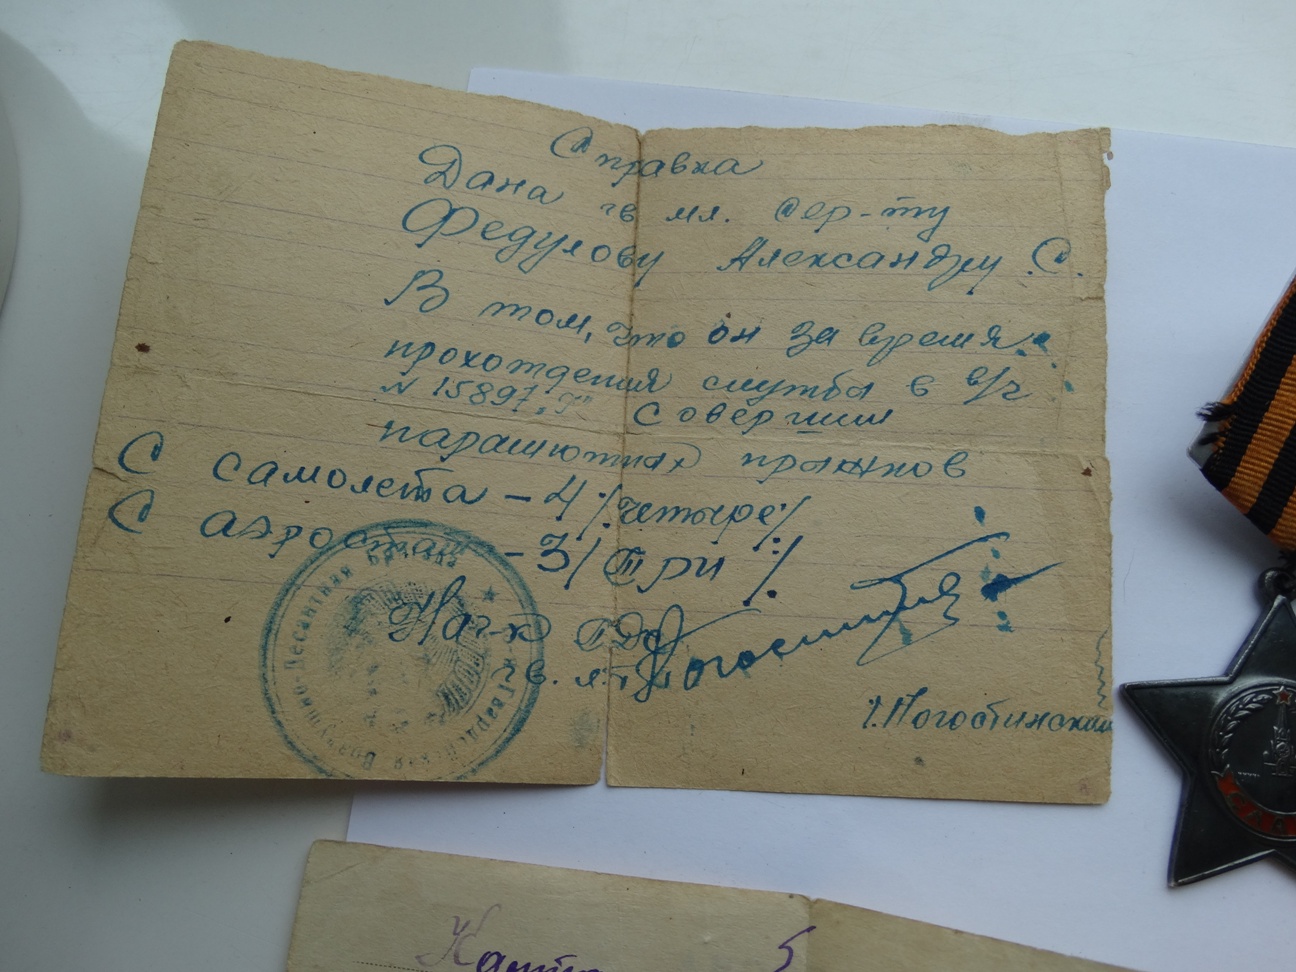 Справка
Дана гв мл. сер-ту
Федулову Александру С.
В том, что он за время
прохождения службы в в/ч
N 15897 совершил
парашютных прыжков
С самолета - 4 /четыре/
С аэростата - 3/ три /
Нач-к ПДС
гв. л-т
Погостинский
Гвардейская Воздушно-Десантная бригада
СЛАВА